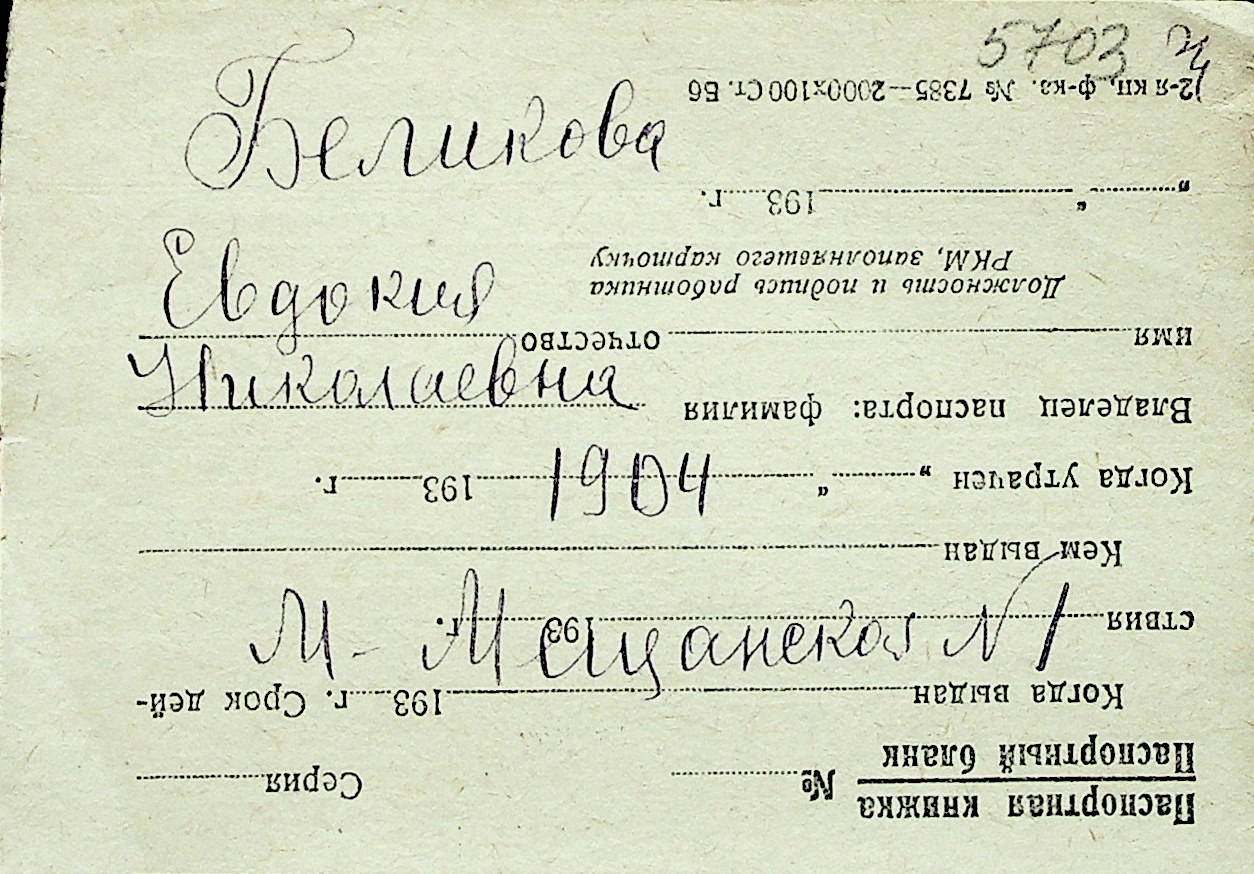 5703
Беликова
Евдокия
Николаевна
1904
М-Мещанская N 1
Паспортная книжка
Паспортный бланк
№ Серия
Когда выдан 193 г. Срок дей-
ствия 193 г.
Кем выдан
Когда утрачен „ “ 193 г.
Владелец паспорта: фамилия
имя отчество
Должность и подпись работника
РКМ, заполнявшего карточку
„ “ 193 г.
2-я кн. ф-ка. № 7385—2000х100 Ст. Бб